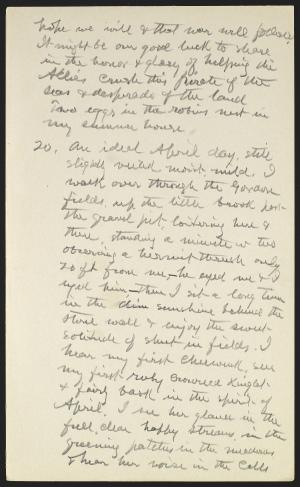 hope we will & that war will follow.
It might be our good luck to share
in the honor & glory of helping the
Allies crush this pirate of the
seas & desperado of the land
Two eggs in the robins nest in
my summer house.
20. An ideal April day, still
slightly veiled, moist, mild. I
walk over through the Gordon
fields, up the little brook past
the gravel pit, loitering here &
there, standing a minute or two
observing a hermit thrush only
20 ft from me, he eyed me & I
eyed him - then I sit a long time
in the dim sunshine behind the
stone wall & enjoy the sweet
solitude of shut in fields. I
hear my first Chewink, see
my first ruby crowned Kinglet
& fairly bask in the spirit of
April. I see her glance in the
full, clear happy streams, in the
greening patches in the meadows
& hear her voice in the calls